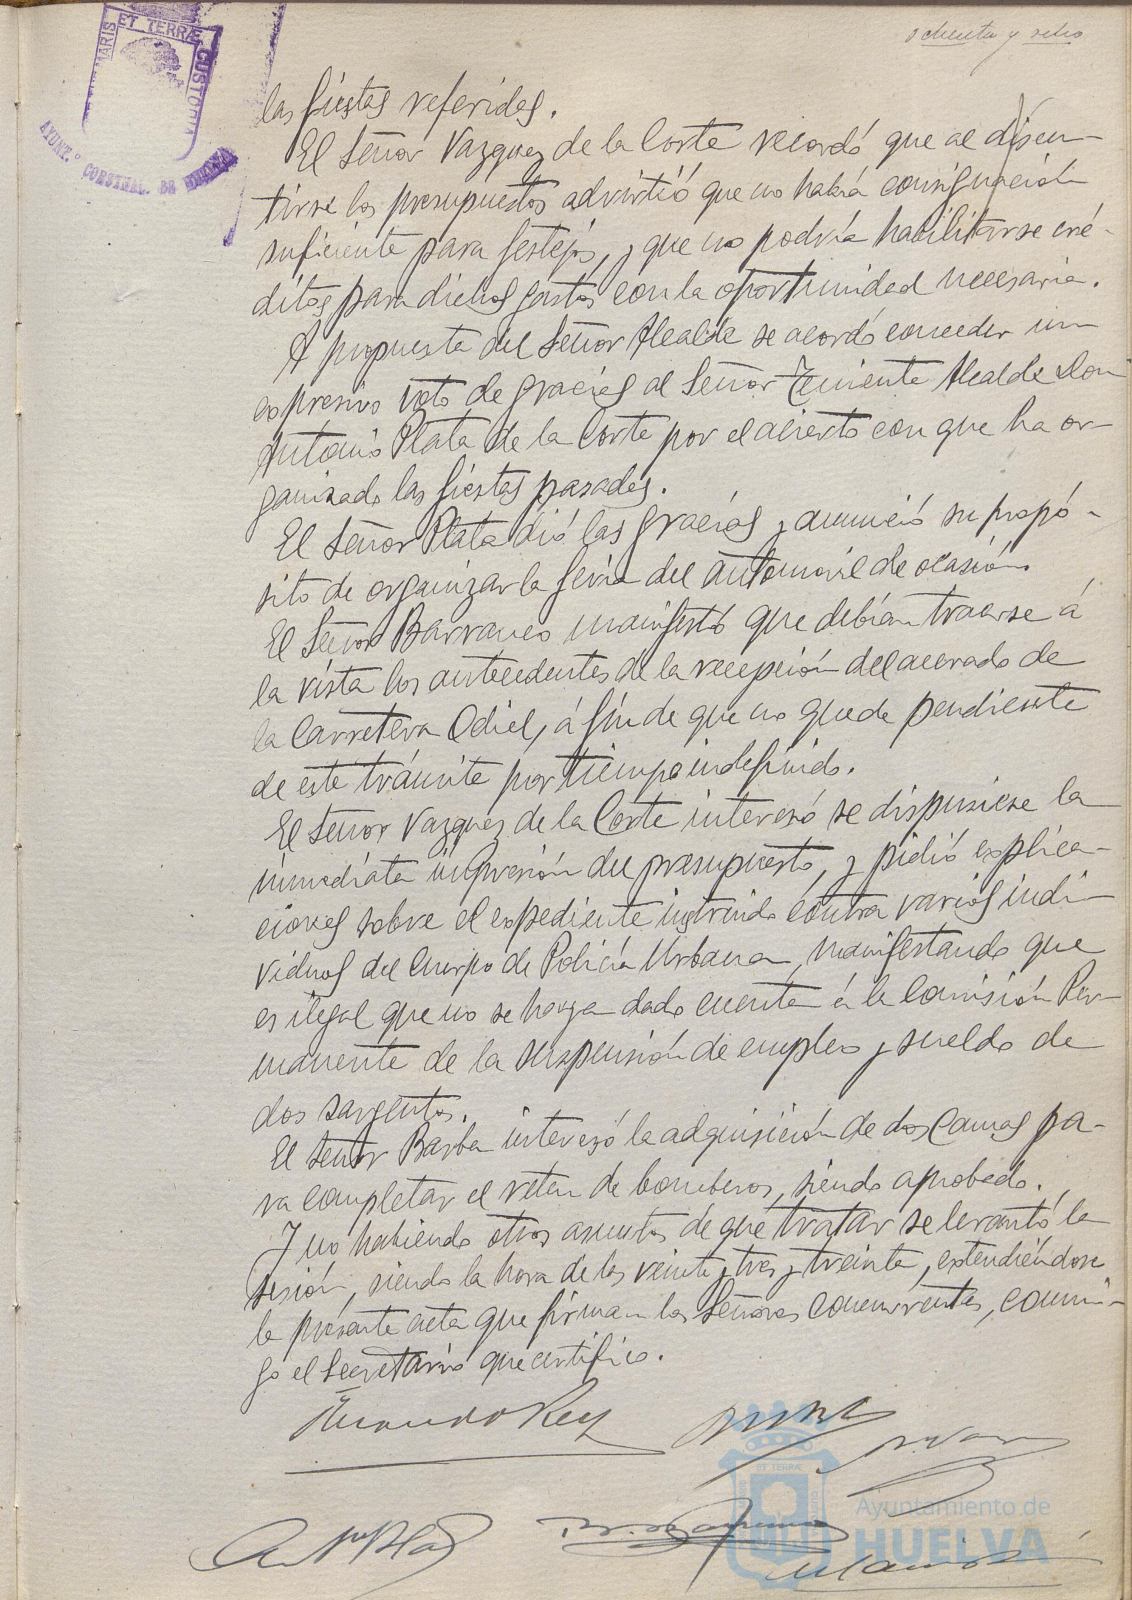 ochenta y ocho
MARIS ET TERRÆ CUSTODIA
AYUNT.º CONSTNAL. DE HUELVA
las fiestas referidas.
El Señor Vazquez de la Corte recordó que al discu-
tirse los presupuestos advirtió que no había consignación
suficiente para festejos, y que no podría habilitarse cré-
ditos para dichos gastos con la oportunidad necesaria.
A propuesta del Señor Alcalde se acordó conceder un
expresivo voto de gracias al Señor Teniente Alcalde Don
Antonio Plata de la Corte por el acierto con que ha or-
ganizado las fiestas pasadas.
El Señor Plata dió las gracias y anunció su propó-
sito de organizar la feria del automovil de ocasión.
El Señor Barranco manifestó que debían traerse á
la vista los antecedentes de la recepción del acerado de
la Carretera Odiel, á fin de que no quede pendiente
de este trámite por tiempo indefinido.
El Señor Vazquez de la Corte interesó se dispusiese la
inmediata impresión del presupuesto, y pidió explica-
ciones sobre el expediente instruido contra varios indi-
viduos del Cuerpo de Policía Urbana, manifestando que
es ilegal que no se haya dado cuenta á la Comisión Per-
manente de la suspensión de empleo y sueldo de
dos sargentos.
El Señor Barba interesó la adquisición de dos camas pa-
ra completar el reten de bomberos, siendo aprobado.
Y no habiendo otros asuntos de que tratar se levantó la
sesión, siendo la hora de las veinte y tres y treinta, extendiéndose
la presente acta que firman los Señores concurrentes, conmi-
go el Secretario que certifico.
Ayuntamiento de
HUELVA